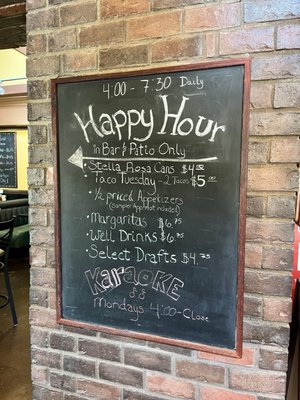 4:00 - 7:30 Daily
Happy Hour
In Bar & Patio Only
Stella Rosa Cans $4.00
Taco Tuesday - 2 Tacos $5.00
½ priced Appetizers
(Sampler App Not Included)
Margaritas $6.75
Well Drinks $6.75
Select Drafts $4.75
KaraOKE
Mondays 4:00-Close